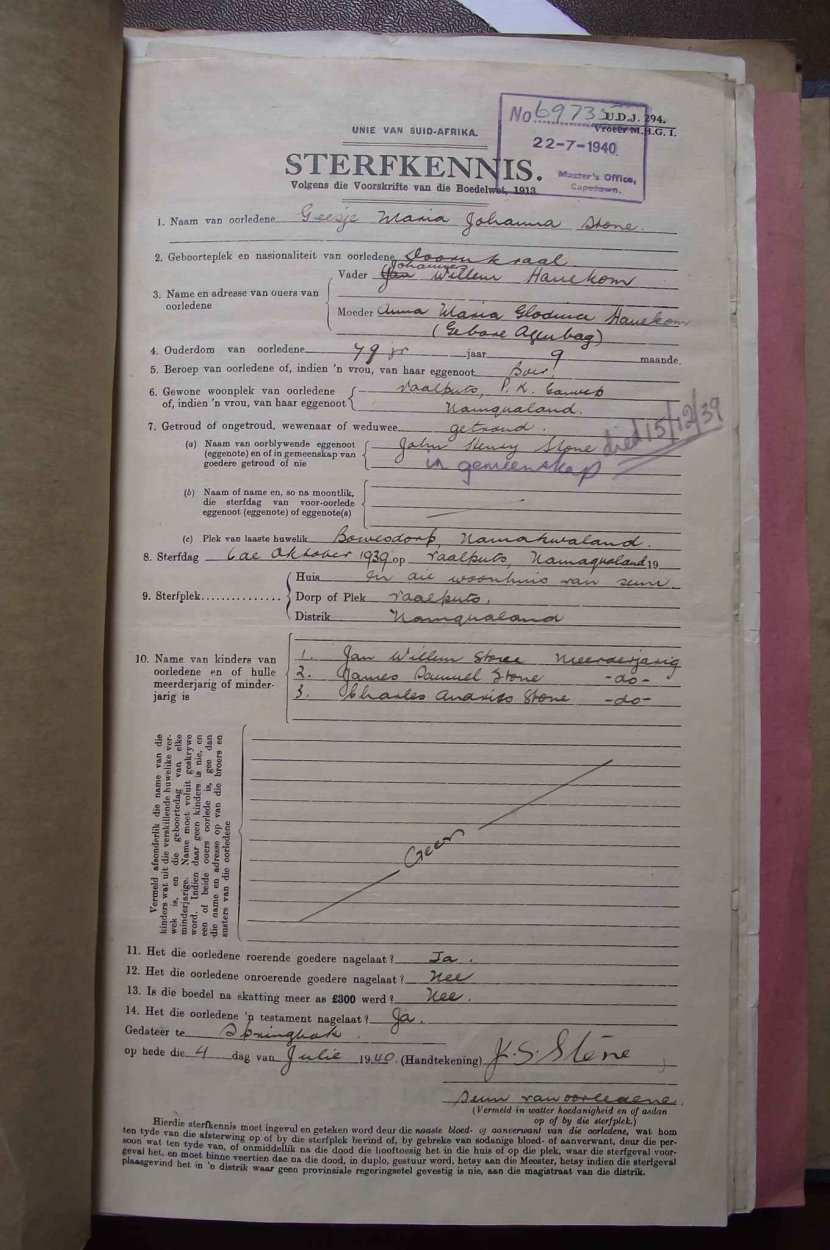 No 69735 U.D.J. 294.
UNIE VAN SUID-AFRIKA. Vroeër M.H.G. I.
22-7-1940
STERFKENNIS.
Master's Office,
Capetown.
Volgens die Voorskrifte van die Boedelwet, 1913.
1. Naam van oorledene Geesje Maria Johanna Stone.
2. Geboorteplek en nasionaliteit van oorledene Doornkraal
Johannes
Vader Willem Hanekom
3. Name en adresse van ouers van
oorledene
Moeder Anna Maria Hanekom
(Gebore Agenbag)
4. Ouderdom van oorledene 79 jr jaar 9 maande.
5. Beroep van oorledene of, indien 'n vrou, van haar eggenoot Boer.
6. Gewone woonplek van oorledene Vaalputs, P.K.
of, indien 'n vrou, van haar eggenoot Namqualand.
7. Getroud of ongetroud, wewenaar of weduwee getroud.
(a) Naam van oorblywende eggenoot John Henry Stone died 15/12/39
(eggenote) en of in gemeenskap van in gemeenskap
goedere getroud of nie
(b) Naam of name en, so na moontlik,
die sterfdag van voor-oorlede
eggenoot (eggenote) of eggenote(s)
(c) Plek van laaste huwelik Bowesdorp, Namakwaland.
8. Sterfdag 6de Oktober 1939 op Vaalputs, Namaqualand 19
Huis In die woonhuis van seun
9. Sterfplek............... Dorp of Plek Vaalputs.
Distrik Namqualand
10. Name van kinders van 1. Jan Willem Stone Meerderjarig
oorledene en of hulle 2. James Samuel Stone -do-
meerderjarig of minder- 3. Charles Andries Stone -do-
jarig is
Vermeld afsonderlik die name van die
kinders wat uit die verskillende huwelike ver-
wek is, en die geboortedag van elke
minderjarige. Name moet voluit geskrywe
word. Indien daar geen kinders is nie, en
een of beide ouers oorlede is, gee dan
die name en adresse op van die broers en
susters van die oorledene
Geen
11. Het die oorledene roerende goedere nagelaat? Ja.
12. Het die oorledene onroerende goedere nagelaat? Nee
13. Is die boedel na skatting meer as £300 werd? Nee.
14. Het die oorledene 'n testament nagelaat? Ja.
Gedateer te Springbok.
op hede die 4 dag van Julie 1940. (Handtekening) J.S. Stone
Seun van oorledene.
(Vermeld in watter hoedanigheid en of asdan
op of by die sterfplek.)
Hierdie sterfkennis moet ingevul en geteken word deur die naaste bloed- of aanverwant van die oorledene, wat hom
ten tyde van die afsterwing op of by die sterfplek bevind of, by gebreke van sodanige bloed- of aanverwant, deur die per-
soon wat ten tyde van, of onmiddellik na die dood die hooftoesig het in die huis of op die plek, waar die sterfgeval voor-
geval het, en moet binne veertien dae na die dood, in duplo, gestuur word, hetsy aan die Meester, hetsy indien die sterfgeval
plaasgevind het in 'n distrik waar geen provinsiale regeringsetel gevestig is nie, aan die magistraat van die distrik.